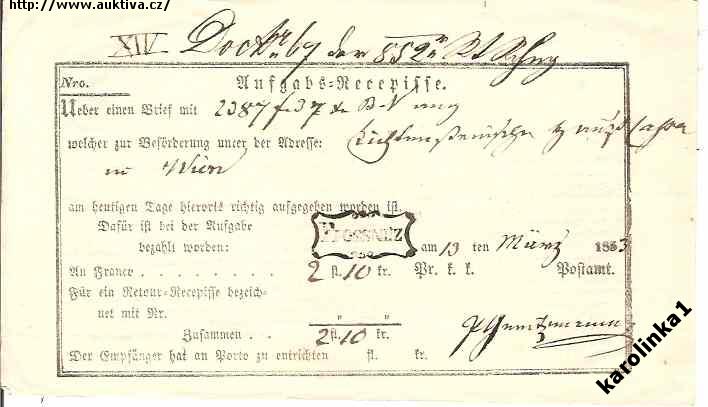 http://www.auktiva.cz/
XIV. Doc No 67 der 852
Nro.
Aufgabs-Recepisse.
Ueber einen Brief mit 2387 f 37 x B-N
welcher zur Beförderung unter der Adresse:
in Wien
am heutigen Tage hierorts richtig aufgegeben worden ist.
Dafür ist bei der Aufgabe
bezahlt worden:
PROSSNIZ
am 13 ten März 1853
An Franco . . . . . . . . 2 fl. 10 kr. Pr. k. k. Postamt.
Für ein Retour-Recepisse bezeich-
net mit Nr. " "
Zusammen . . 2 fl. 10 kr.
Der Empfänger hat an Porto zu entrichten fl. kr.
karolinka1